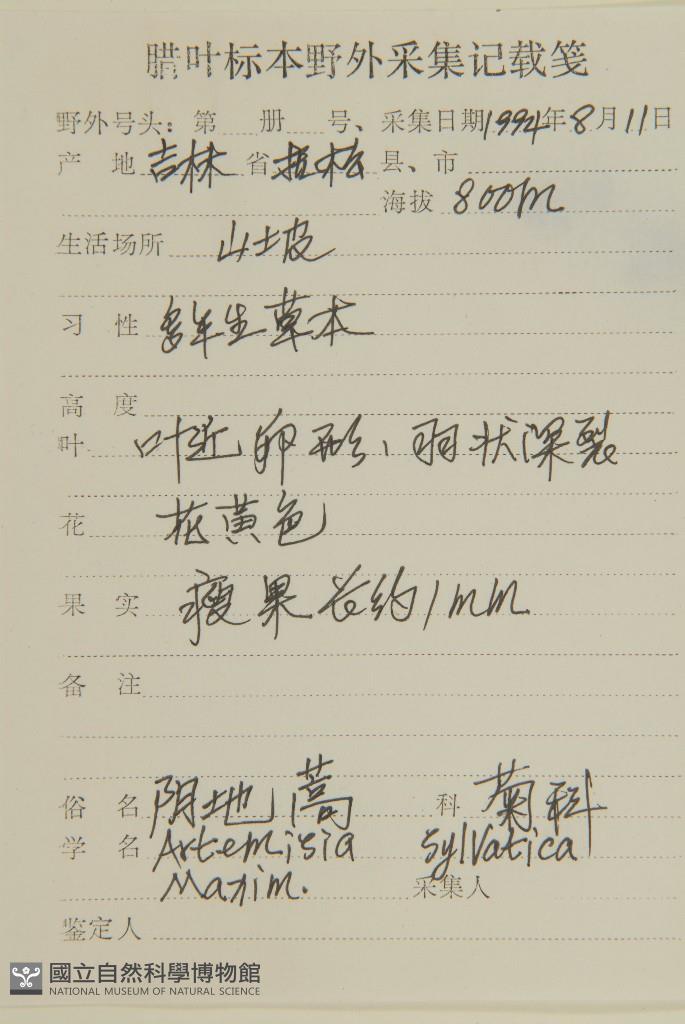 腊叶标本野外采集记载笺
野外号头：第 册 号、采集日期1994年8月11日
产 地 吉林 省 抚松 县、市
海拔 800m
生活场所 山土坡
习 性 多年生草本
高 度
叶 叶近卵形、羽状深裂
花 花黄色
果 实 瘦果长约1mm
备 注
俗 名 阴地蒿 科 菊科
学 名 Artemisia Sylvatica
Maxim. 采集人
鉴定人
國立自然科學博物館
NATIONAL MUSEUM OF NATURAL SCIENCE